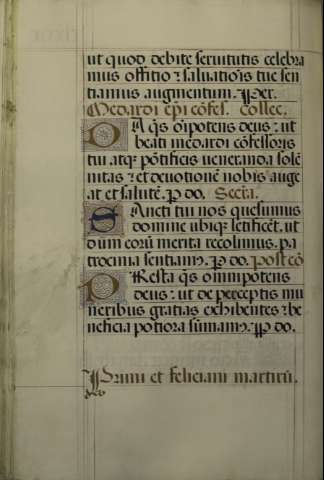 ut quod debite seruitutis celebra
mus offitio ⁊ saluatiõis tue sen
tiamus augmentum. Per.
Medardi epi cõfes. Collec.
DA qs oipotens deus: ut
beati medardi cõfessoris
tui atq; põtificis ueneranda solẽ
nitas ⁊ et deuotionem nobis auge
at et salutẽ. P do. Secta.
SAncti tui nos quesumus
domine ubiq; letificẽt. ut
dum eorũ merita recolimus. pa
trocinia sentiam9. P do. Post cõ
PResta qs omnipotens
deus: ut de perceptis mu
neribus gratias exhibentes ⁊ be
neficia potiora sumam9. P do.
Primi et feliciani martirũ.